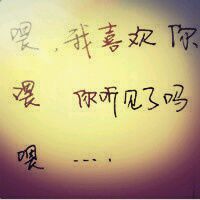 喂，我喜欢你
喂 你听见了吗
喂 ....